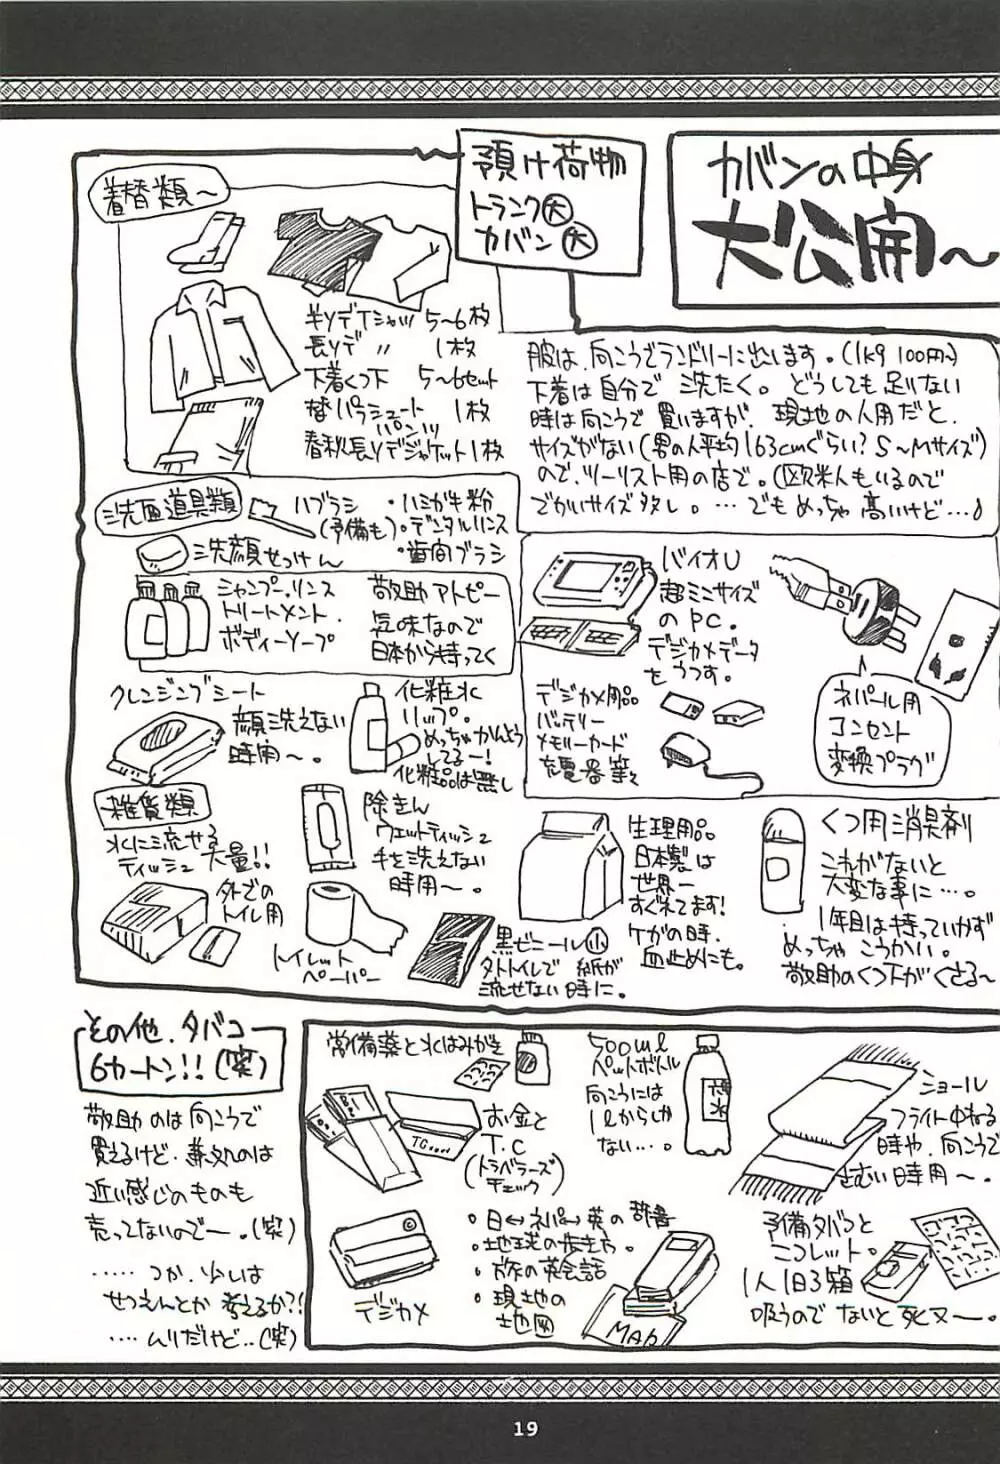 カバンの中身
大公開〜
預け荷物
トランク大
カバン大
着替類〜
半ソデTシャツ 5〜6枚
長ソデ 〃 1枚
下着くつ下 5〜6セット
替パラシュート 1枚
パンツ
春秋長ソデジャケット1枚
服は、向こうでランドリーに出します。(1kg 100円〜)
下着は自分で 洗たく。どうしても足りない
時は向こうで買いますが、現地の人用だと、
サイズがない(男の人平均163cmぐらい? S〜Mサイズ)
ので、ツーリスト用の店で。(欧米人もいるので
でかいサイズ多し。…でもめっちゃ高いけど…♪
洗面道具類
ハブラシ
(予備も)
・ハミガキ粉
。デンタルリンス
・歯間ブラシ
洗顔せっけん
シャンプー、リンス
トリートメント、
ボディーソープ
敬助アトピー
気味なので
日本から持ってく
クレンジングシート
顔洗えない
時用〜。
化粧水
リップ。
めっちゃかんそう
してるー!
化粧品は無し
バイオU
超ミニサイズ
のPC。
デジカメデータ
をうつす。
デジカメ用品
バッテリー
メモリーカード
充電器等々
ネパール用
コンセント
変換プラグ
雑貨類
水に流せる
ティッシュ 大量!!
外での
トイレ用
除きん
ウェットティッシュ
手を洗えない
時用〜。
トイレット
ペーパー
黒ビニール小
外トイレで 紙が
流せない時に。
生理用品
日本製は
世界一
すぐれてます!
ケガの時、
血止めにも。
くつ用消臭剤
これがないと
大変な事に…。
1年目は持っていかず
めっちゃ こうかい。
敬助のくつ下がくさる〜
その他、タバコ
6カートン!!(笑)
敬助のは向こうで
買えるけど、兼処のは
近い感じのものも
売ってないのでー。(笑)
…… つか、少しは
せつえんとか考えるか?!
…. ムリだけど..(笑)
常備薬と水はみがき
500ml
ペットボトル
向こうには
1lからしか
ない…。
お金と
T.C
(トラベラーズ
チェック)
デジカメ
・日↔ネパ↔英の辞書
・地球の歩き方。
・旅の英会話
・現地の
地図
MAP
ショール
フライト中ねる
時や、向こうで
さむい時用〜。
予備タバコと
ニコレット。
1人1日3箱
吸うので ないと死ヌ〜。
19